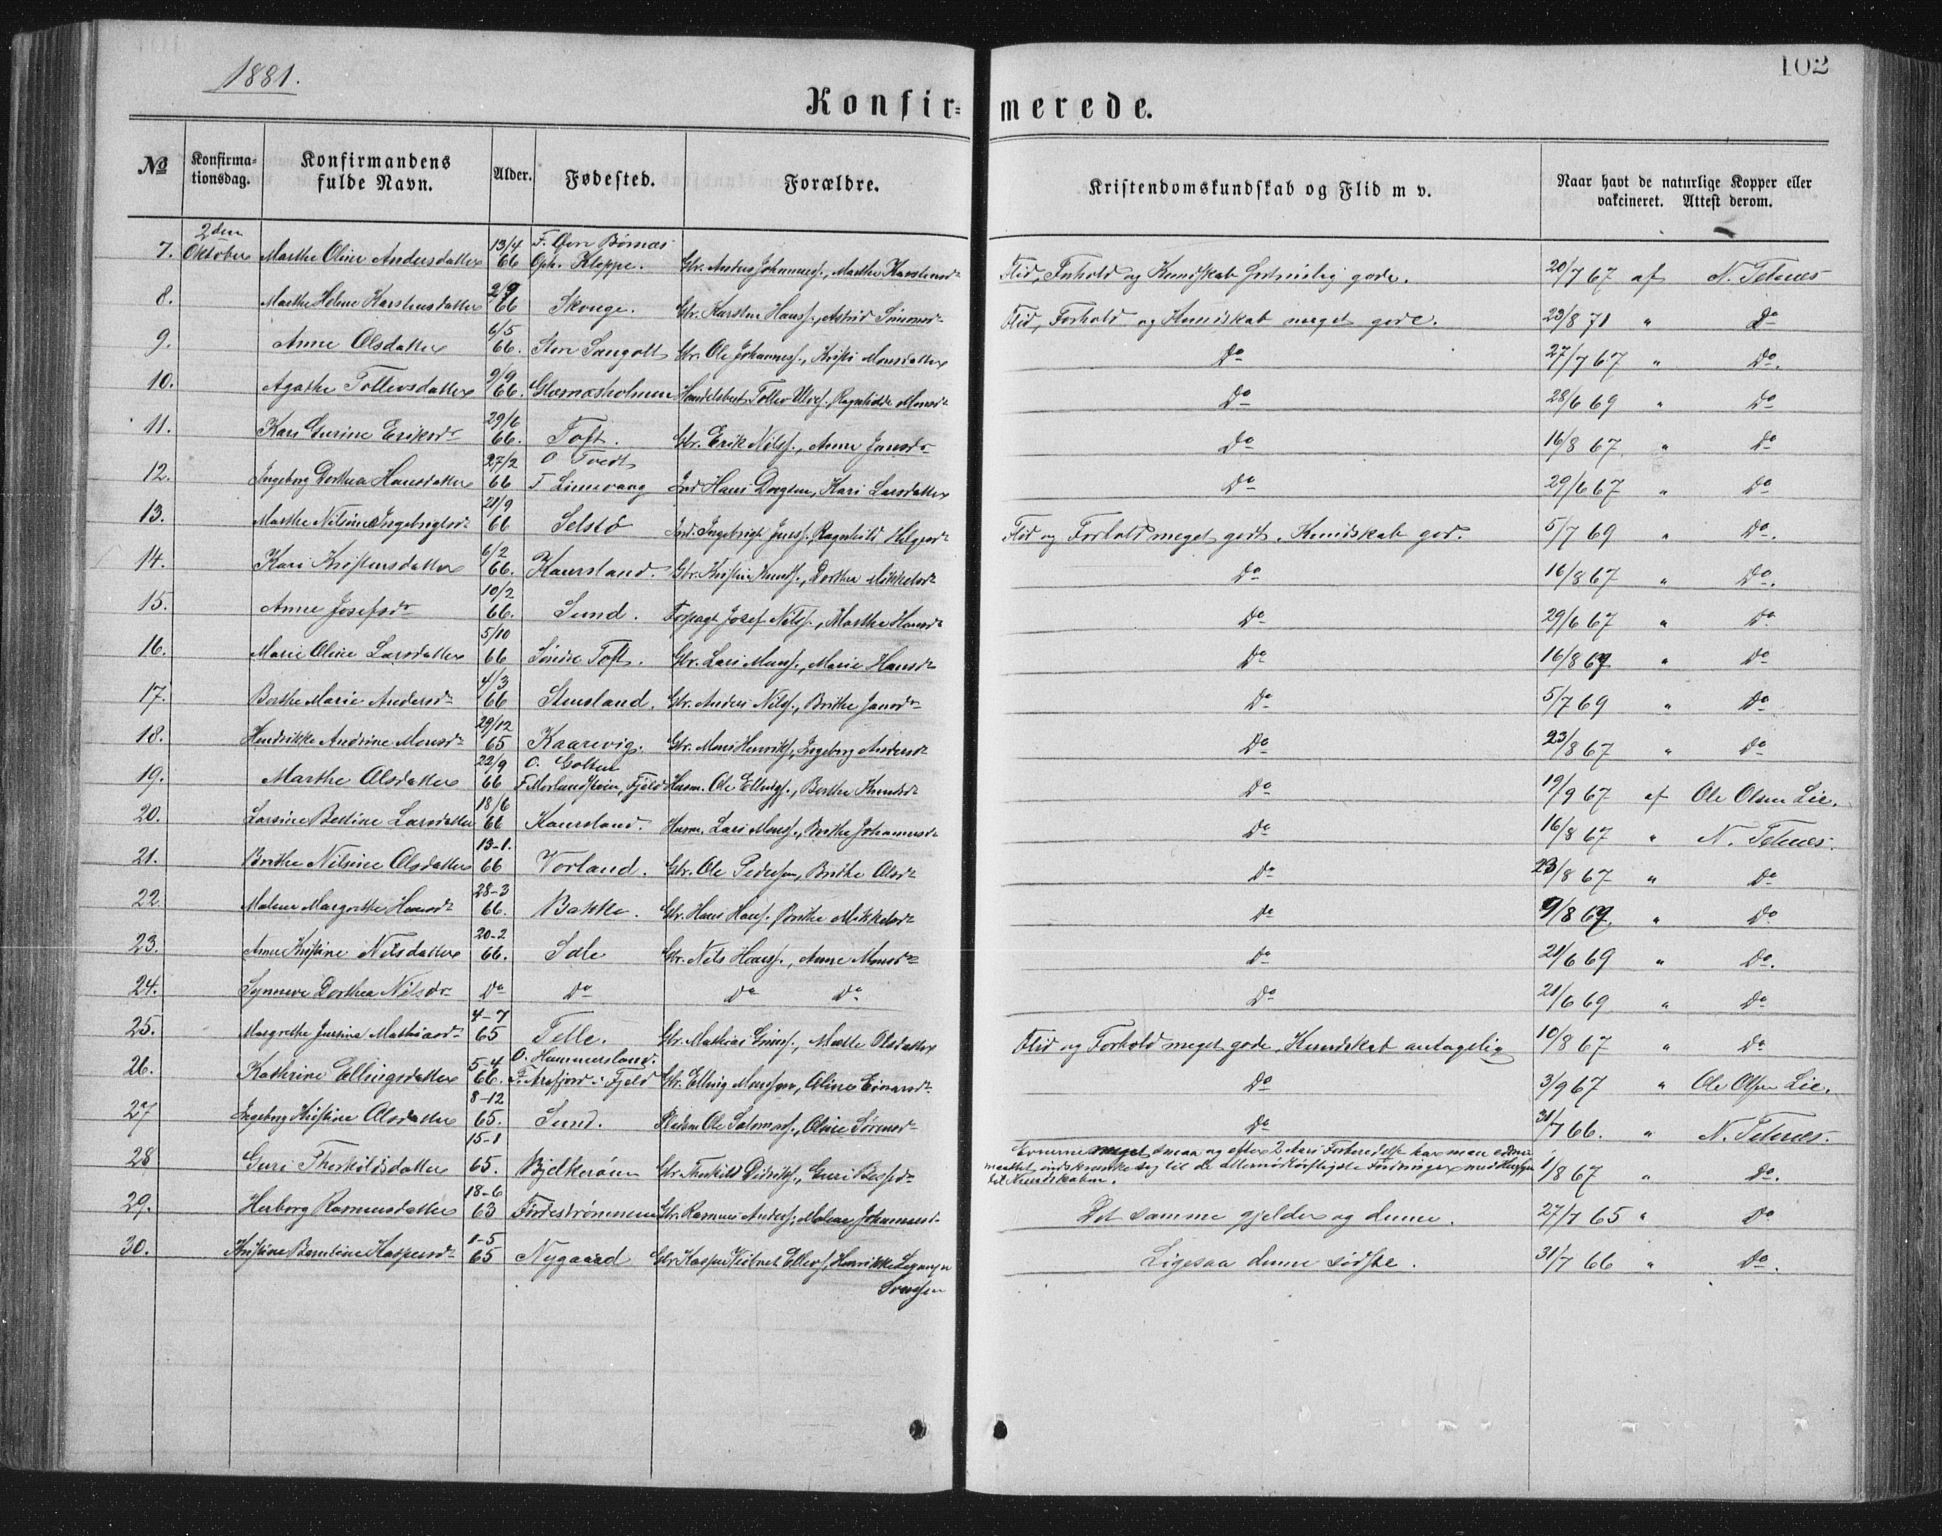 1881.
102
Konfir- merede.
No Konfirma- tionsdag. Konfirmandens fulde Navn. Alder. Fødested. Forældre. Kristendomskundskab og Flid m v. Naar havt de naturlige Kopper eller vakcineret. Attest derom.
7. 2den Oktober Marthe Oline Andersdatter 13/4 66 F. Øvre Børnæs Oph. Kleppe. Gbr. Anders Johanness., Marthe Karstensdr Flid, Forhold og Kundskab gode. 20/7 67 af N. Telnes
8. Marthe Helene Karstensdatter 2/9 66 Skouge. Gbr. Karsten Hanss., Astrid Simonsdr Flid, Forhold og Kundskab meget gode. 23/8 71 " Do
9. Anne Olsdatter 6/5 66. Store Sangolt Gbr. Ole Johanness., Kristi Monsdatter Do 27/7 67 " Do.
10. Agathe Tollevsdatter 9/9 66. Glæsnæsholmen Handelsbet. Tollev Ulves., Ragnhilde Monsdr Do 28/6 69 " Do
11. Kari Gurine Eriksdr 29/6 66. Toft. Gbr. Erik Nilss., Anne Jansdr Do 16/8 67 " Do
12. Ingeborg Dorthea Hansdatter 27/2 66 O Tvedt F Limevaag Ind Hans Kari Larsdatter Do 29/6 67 " Do
13. Marthe Nilsine Ingebrigtsdr 21/9 66 Selstø Ind. Ingebrigt Jenss., Ragnhild Helgesdr Flid og Forhold meget godt. Kundskab god. 5/7 69 " Do.
14. Kari Kristensdatter 6/2 66. Kaursland. Gbr. Kristen Knuds., Dorthea Mikkelsdr Do 16/8 67 " Do.
15. Anne Josefsdr 10/2 66. Sund. Forpagt Josef Nilss., Marthe Hansdr Do 29/6 67 " Do
16. Marie Oline Larsdatter 5/10 66 Søndre Toft. Gbr. Lars Monss., Marie Hansdr Do 16/8 67 " Do
17. Berthe Marie Andersdr 4/3 66 Steusland. Gbr. Anders Nilss., Brithe Jansdr Do 5/7 69 " Do
18. Hendrikke Andrine Monsdr 29/12 65 Kaarevig. Gbr. Mons Henriks., Ingeborg Andersdr Do 23/8 67 " Do
19. Marthe Olsdatter 22/9 66 O. Golten F. Morland, Fjeld Husm. Ole Ellings., Berthe Knudsdr Do 19/9 67 af Ole Olsen Lie.
20. Larsine Bertine Larsdatter 18/6 66 Kaursland. Husm. Lars Monss., Brithe Johannesdr Do 16/8 67 " N. Telnes.
21. Brithe Nilsine Olsdatter 13-1. 66 Vorland. Gbr. Ole Pedersen, Brithe Olsdr Do 23/8 67 " Do
22. Malene Margrethe Hansdr 28-3 66. Bakke. Gbr. Hans Hans. Brithe Mikkelsdr Do 9/8 67 " Do
23. Anne Kristine Nilsdatter 20-2 66. Sæle Gbr. Nils Hanss., Anne Monsdr Do 21/6 69 " Do.
24. Synneve Dorthea Nilsdr Do Do Do Do Do 21/6 69 " Do
25. Margrethe Jensine Mathiasdr 4-7 65 Telle. Gbr. Mathias Marthe Olsdatter Flid og Forhold meget gode. Kundskab antagelig 10/8 67 " Do
26. Kathrine Ellingsdatter 5-4 66. O. Hammersland. F. Arefjord i Fjeld Gbr. Elling Monssen, Oline Einarsdr Do 3/9 67 " Ole Olsen Lie.
27 Ingeborg Kristine Olsdatter 8-12 65. Sund. Pladsm Ole Salomons., Oline Sørensdr Do 31/7 66. " N. Telnes.
28 Guri Therkildsdatter 15-1 65. Bjelkerøen Gbr. Therkild Didriks., Guri Evnerne meget smaa og efter 2 Aars Forberedelse har man
indskrænke sig til de allernødtørftigste Fordringer med Hensyn
til Kundskaben. 1/8 67 " Do.
29. Herborg Rasmusdatter 18-6 63 Førdestrømmen Gbr. Rasmus Anders., Malene Johannesdr Det samme gjelder og denne. 27/7 65 " Do
30. Kristine Berntine Kaspersdr 1-5 65 Nygaard Gbr Kasper Ellers., Henrikke Ligesaa denne sidste. 31/7 66 " Do.